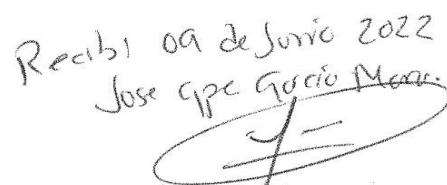 Recibi 09 de Junio 2022
Jose Gpe Garcia